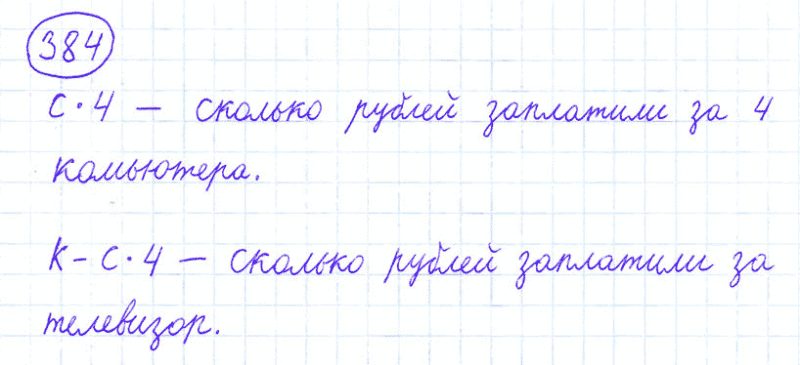 384
с·4 — сколько рублей заплатили за 4
комьютера.
к - с·4 — сколько рублей заплатили за
телевизор.